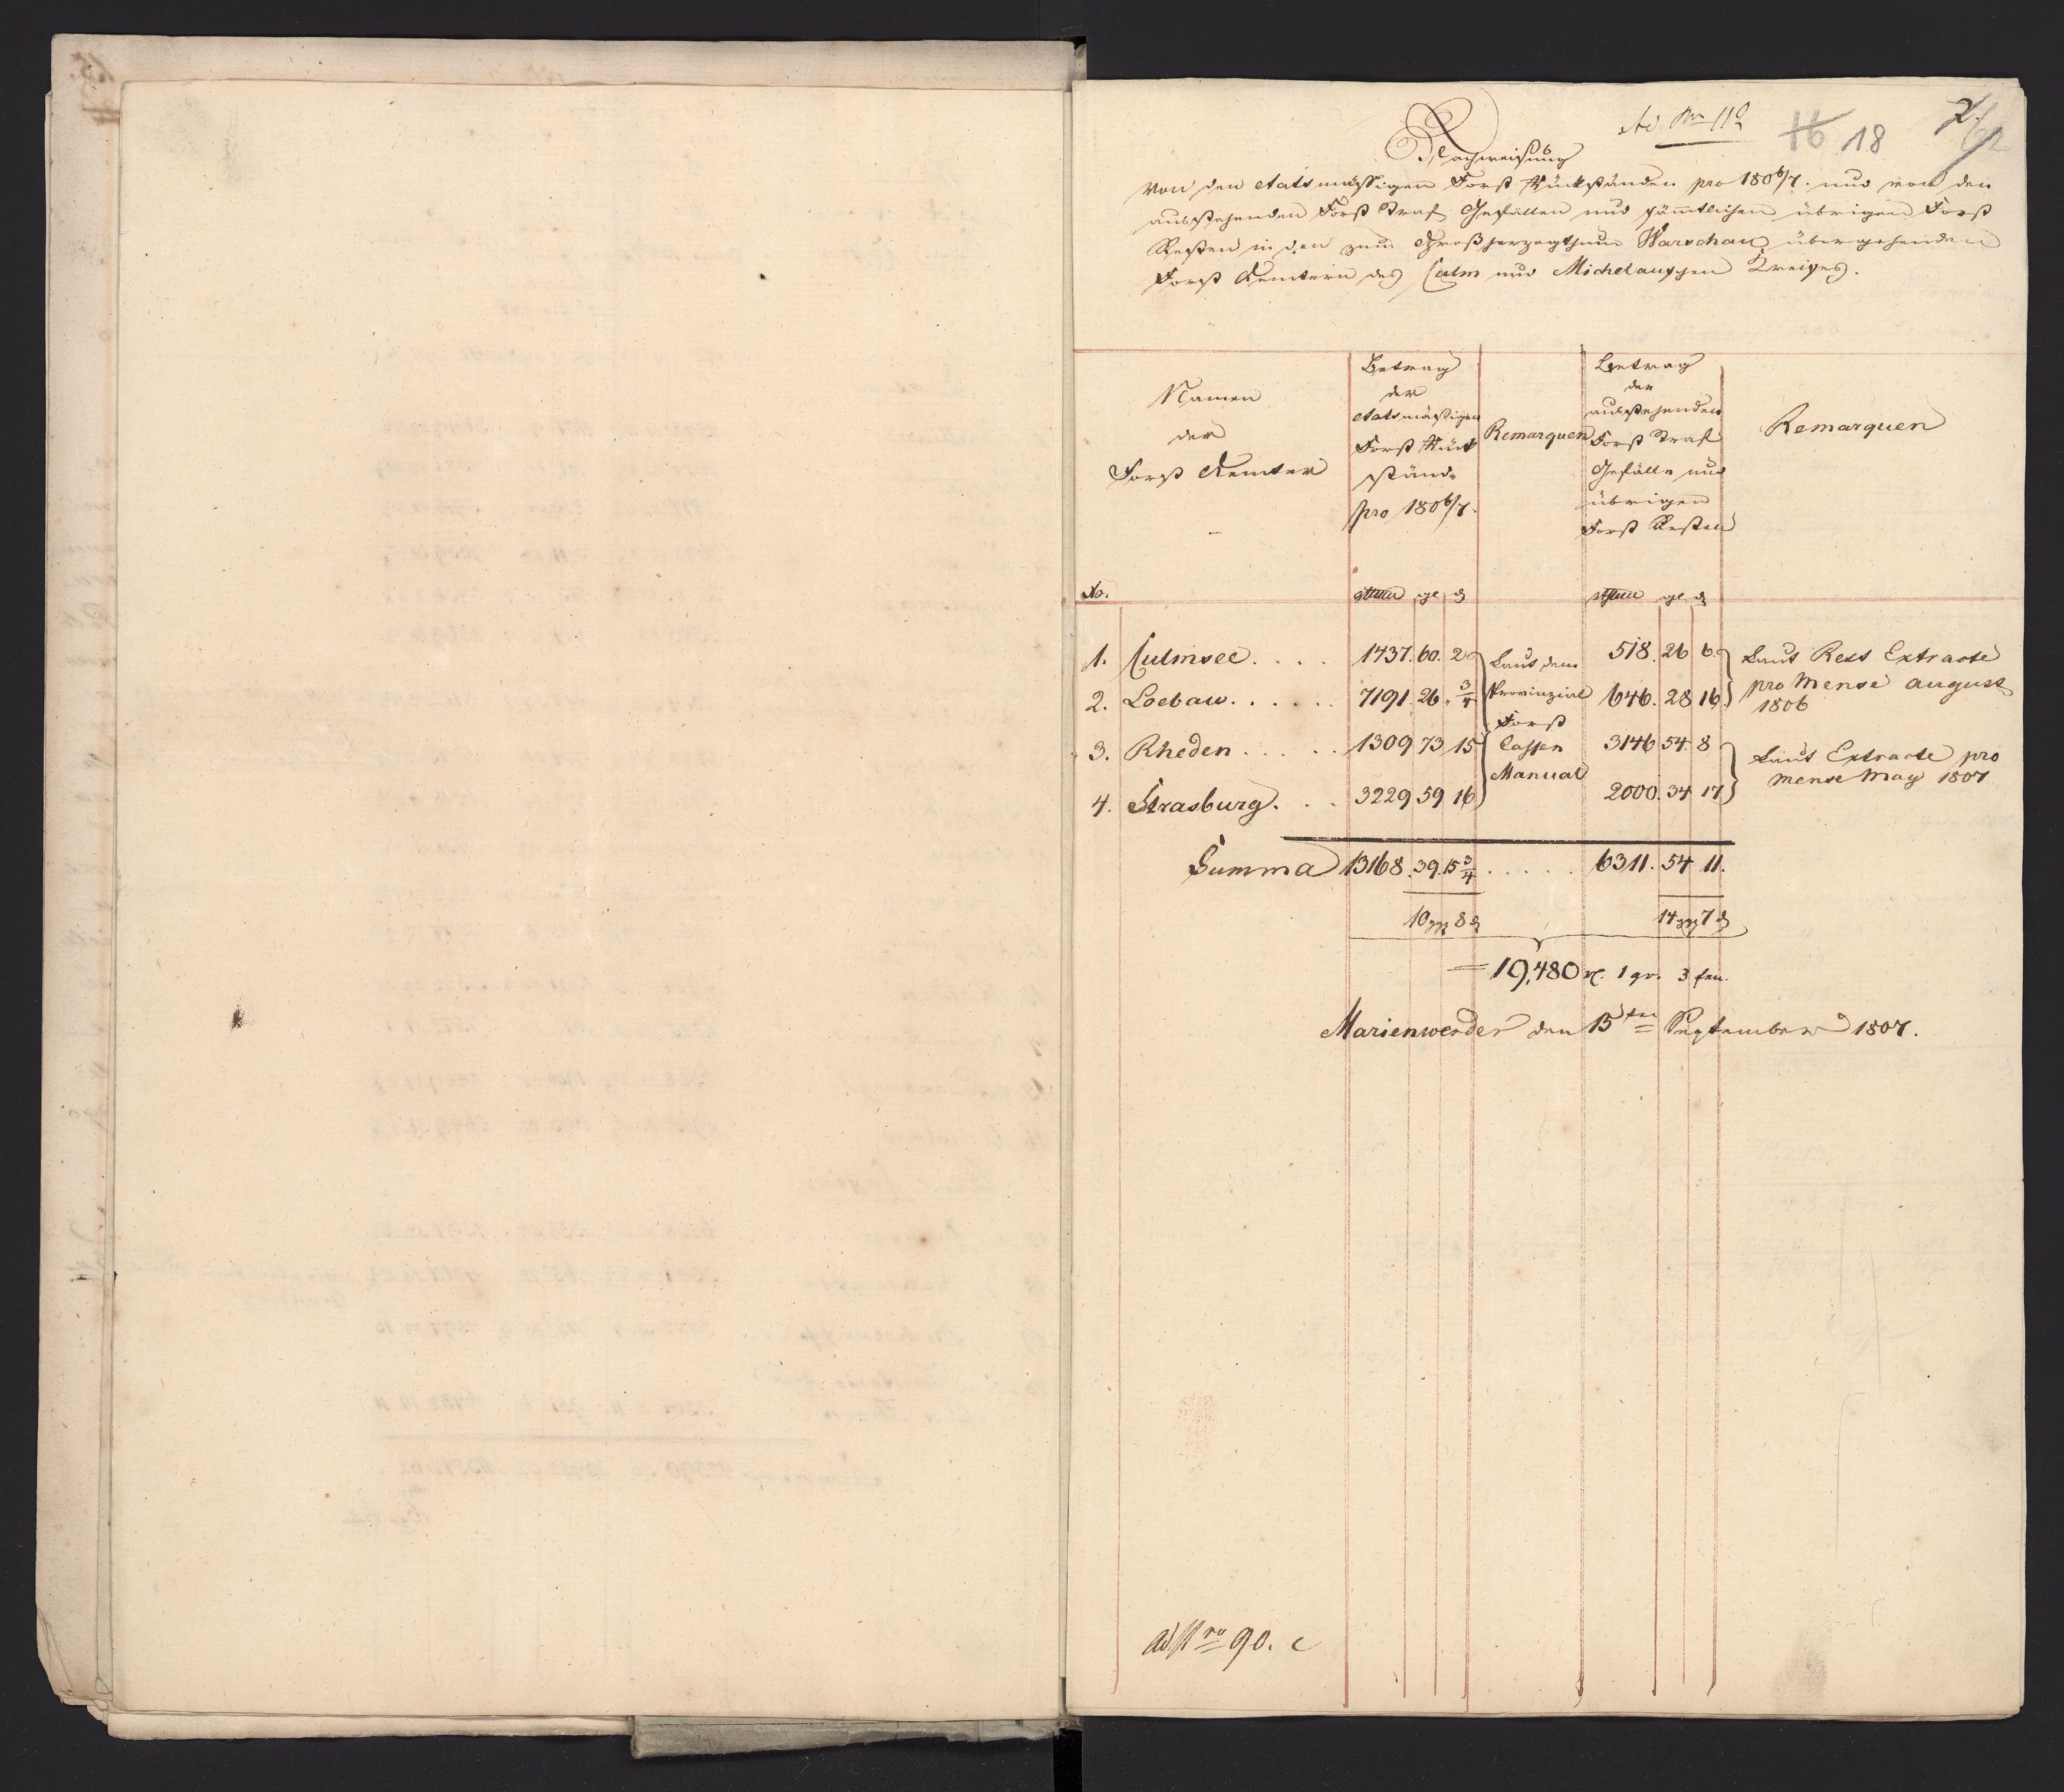 Ad Nro 110
16 18
Nachweisung
von den etatsmäßigen Forst Rückständen pro 180 6/7. und von den
ausstehenden Forst Straf Gefällen und sämmtlichen übrigen Forst
Resten in den zum Großherzogthum Warschau übergehenden
Forst Aemtern des Culm und Michelauschen Kreises.
No.
Namen
der
Forst Aemter
Betrag
der
etatsmäßigen
Forst Rück
stände
pro 180 6/7.
Remarquen
Betrag
der
ausstehenden
Forst Straf
Gefälle und
übrigen
Forst Resten
Remarquen
1. Culmsee . . . . 1437. 60. 2 518. 26 6.
2. Loebau . . . . . . 7191. 26. 3/4 646. 28 16.
3. Rheden . . . . . 1309 73 15 3146 54. 8
4. Strasburg . . . 3229 59 16 2000. 34 17
Laut dem
Provinzial
Forst
Cassen
Manual
Laut Rest Extracte
pro Mense august
1806
Laut Extracte pro
mense May 1807
Summa 13168. 39. 15 3/4 . . . . . 6311. 54 11.
10 ggr 8 d 14 ggr 7 d
= 19,480 rt. 1 gr. 3 fen.
Marienwerder den 15ten September 1807.
ad Nro 90. c